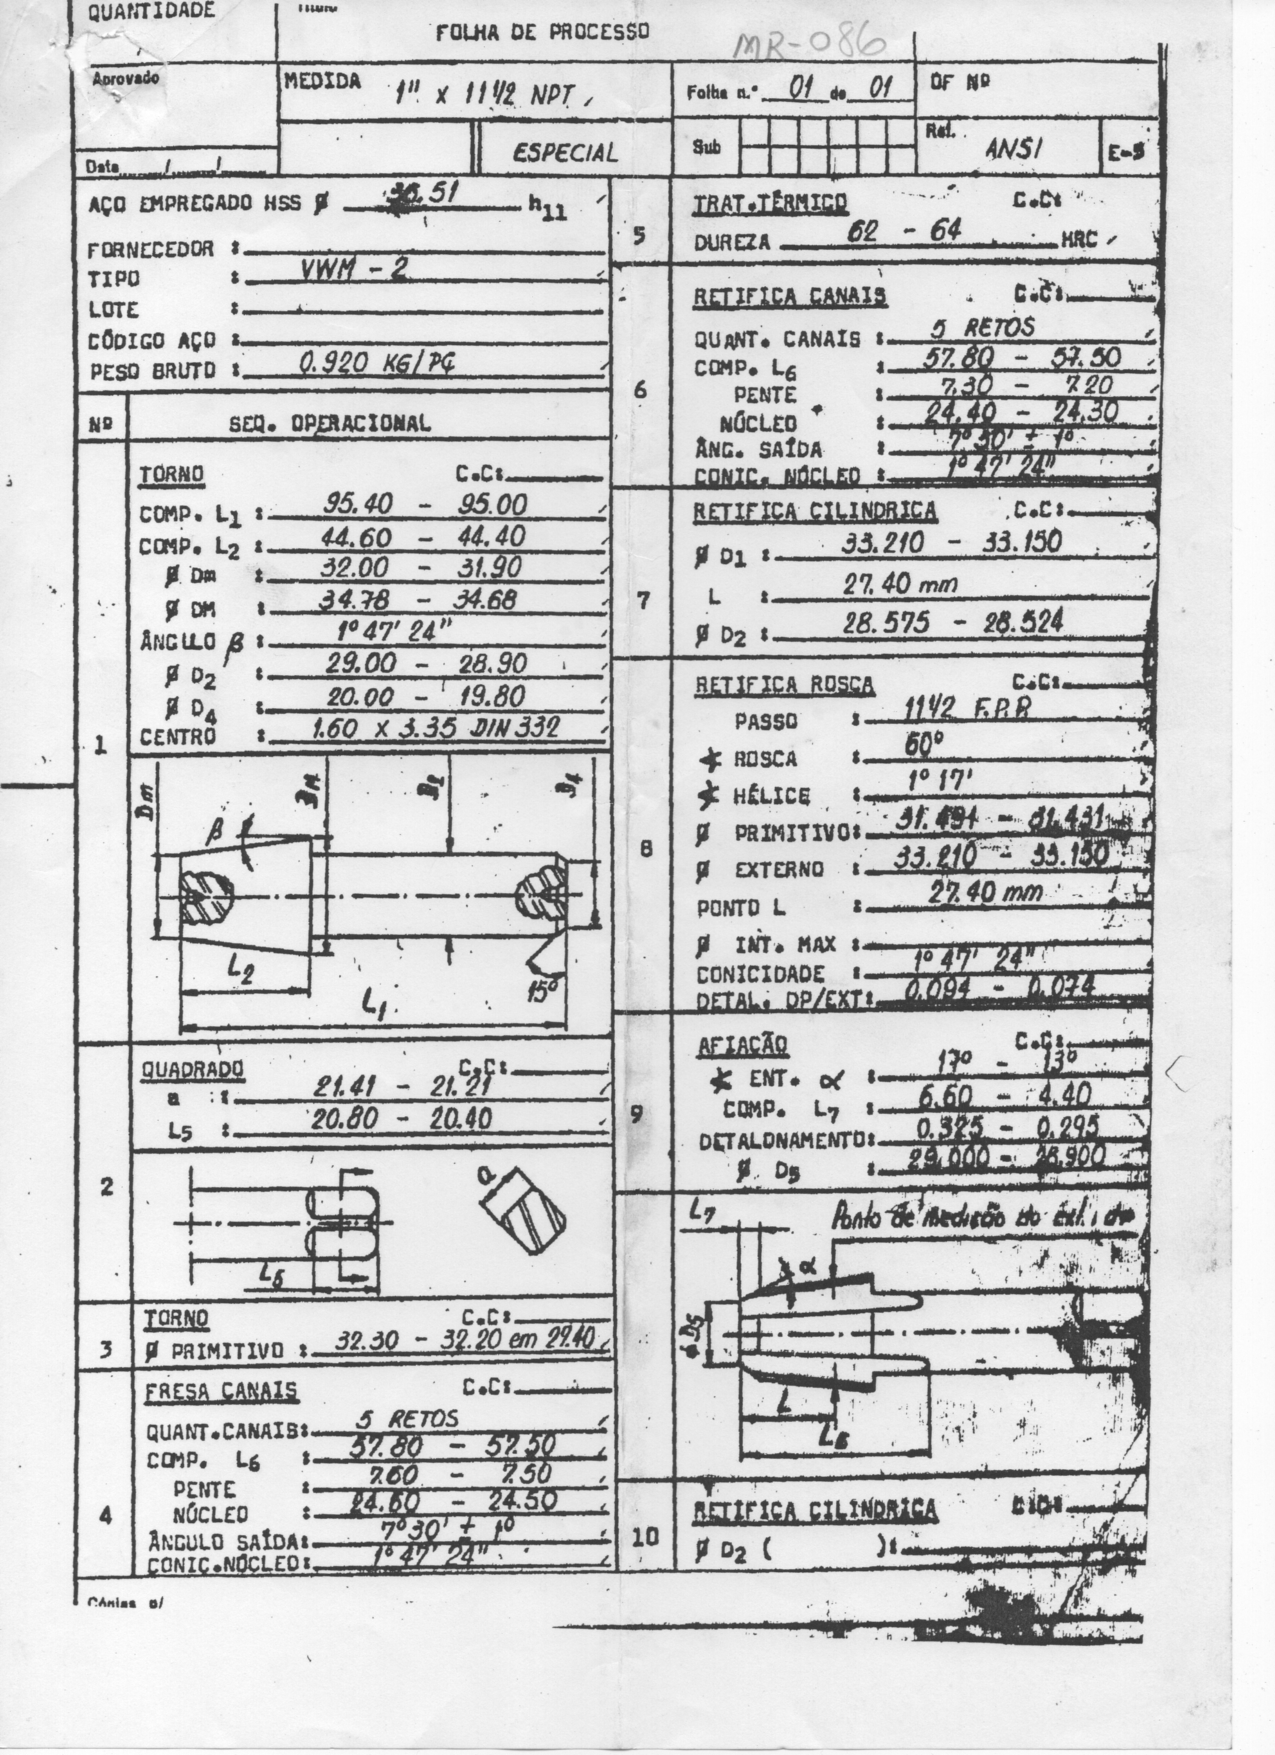 QUANTIDADE
Título
FOLHA DE PROCESSO
MR-086
Aprovado
MEDIDA 1" x 11 1/2 NPT
Folha n.° 01 de 01
OF Nº
ESPECIAL
Sub
Ref. ANSI
E-5
Data / /
AÇO EMPREGADO HSS Ø .51 h11
FORNECEDOR :
TIPO : VWM - 2
LOTE :
CÓDIGO AÇO :
PESO BRUTO : 0.920 KG/PÇ
Nº
SEQ. OPERACIONAL
1
TORNO C.C:
COMP. L1 : 95.40 - 95.00
COMP. L2 : 44.60 - 44.40
Ø Dm : 32.00 - 31.90
Ø DM : 34.78 - 34.68
ÂNGULO β : 1º 47' 24"
Ø D2 : 29.00 - 28.90
Ø D4 : 20.00 - 19.80
CENTRO : 1.60 X 3.35 DIN 332
Dm
β
DM
D2
D4
L2
L1
15º
2
QUADRADO C.C:
a : 21.41 - 21.21
L5 : 20.80 - 20.40
a
3
TORNO C.C:
Ø PRIMITIVO : 32.30 - 32.20 em 27.40
4
FRESA CANAIS C.C:
QUANT.CANAIS: 5 RETOS
COMP. L6 : 57.80 - 57.50
PENTE : 7.60 - 7.50
NÚCLEO : 24.60 - 24.50
ÂNGULO SAÍDA: 7º 30' ± 1º
CONIC.NÚCLEO: 1º 47' 24"
Cópias p/
5
TRAT.TÉRMICO C.C:
DUREZA 62 - 64 HRC
6
RETIFICA CANAIS C.C:
QUANT. CANAIS : 5 RETOS
COMP. L6 : 57.80 - 57.50
PENTE : 7.30 - 7.20
NÚCLEO : 24.40 - 24.30
ÂNG. SAÍDA : 7º 30' ± 1º
CONIC. NÚCLEO : 1º 47' 24"
7
RETIFICA CILINDRICA C.C:
Ø D1 : 33.210 - 33.150
L : 27.40 mm
Ø D2 : 28.575 - 28.524
8
RETIFICA ROSCA C.C:
PASSO : 11 1/2 F.P.P.
∢ ROSCA : 60º
∢ HÉLICE : 1º 17'
Ø PRIMITIVO: 31.491 - 31.431
Ø EXTERNO : 33.210 - 33.150
PONTO L : 27.40 mm
Ø INT. MAX :
CONICIDADE : 1º 47' 24"
DETAL. DP/EXT: 0.094 - 0.074
9
AFIAÇÃO C.C:
∢ ENT. α : 17º - 13º
COMP. L7 : 6.60 - 4.40
DETALONAMENTO: 0.325 - 0.295
Ø D5 : 29.000 - 28.900
L7
Ponto de medição do Ext.
α
Ø D5
L
L6
10
RETIFICA CILINDRICA C.C:
Ø D2 ( ):